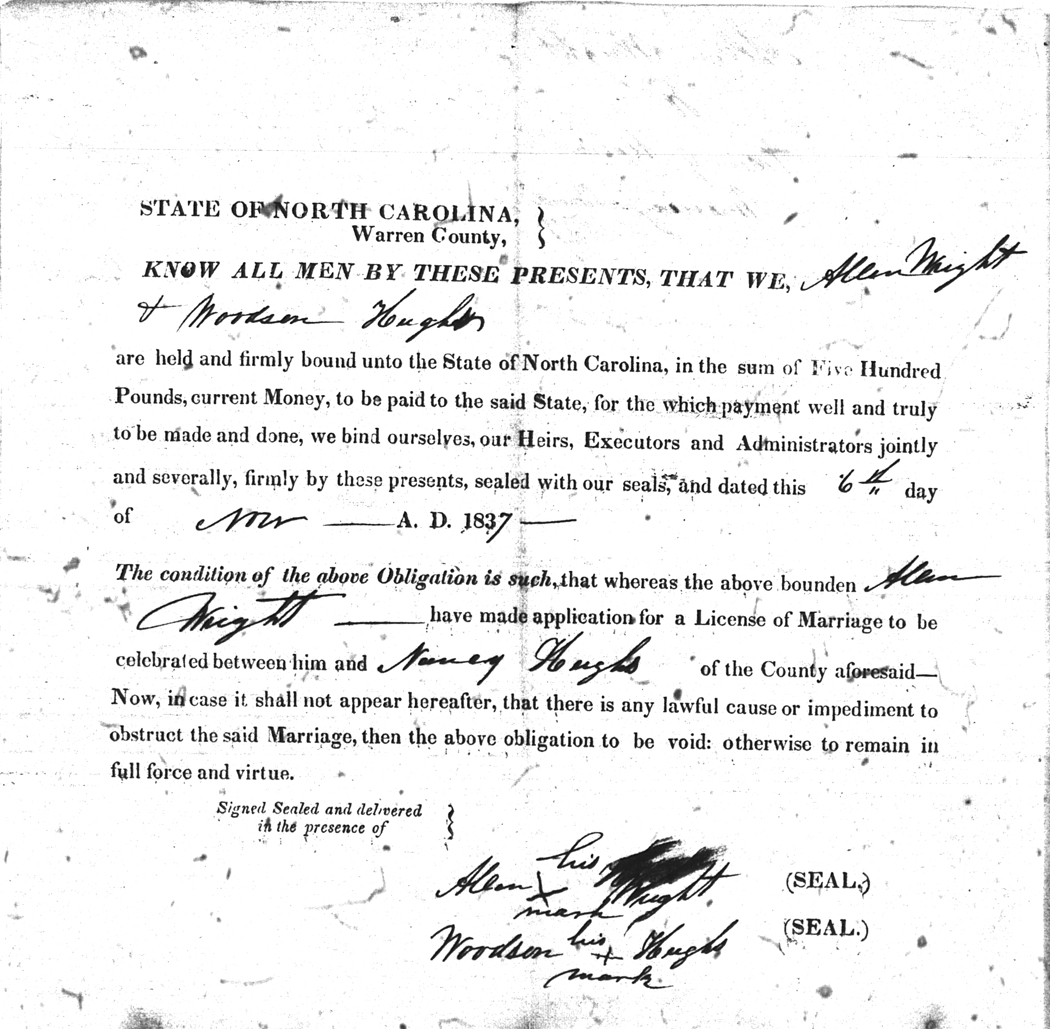 STATE OF NORTH CAROLINA,
Warren County,
KNOW ALL MEN BY THESE PRESENTS, THAT WE, Allen Wright
& Woodson Hughs
are held and firmly bound unto the State of North Carolina, in the sum of Five Hundred
Pounds, current Money, to be paid to the said State, for the which payment well and truly
to be made and done, we bind ourselves, our Heirs, Executors and Administrators jointly
and severally, firmly by these presents, sealed with our seals, and dated this 6th day
of Nov A. D. 1837
The condition of the above Obligation is such, that whereas the above bounden Allen
Wright have made application for a License of Marriage to be
celebrated between him and Nancy Hughs of the County aforesaid—
Now, in case it shall not appear hereafter, that there is any lawful cause or impediment to
obstruct the said Marriage, then the above obligation to be void: otherwise to remain in
full force and virtue.
Signed Sealed and delivered
in the presence of
his
Allen X Wright (SEAL.)
mark
Woodson his + Hughs (SEAL.)
mark